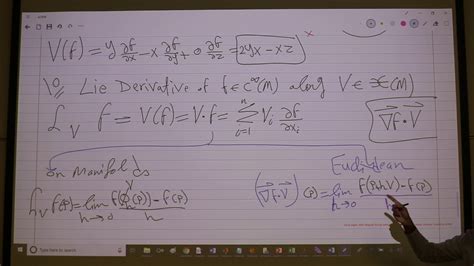 V(f) = y ∂f/∂x - x ∂f/∂y + 0 ∂f/∂z = 2yx - xz
Lie Derivative of f ∈ C^∞(M) along V ∈ 𝔛(M)
ℒ_V f = V(f) = V·f = Σ_{i=1}^{n} V_i ∂f/∂x_i
∇f·V
on Manifolds
Euclidean
f(p) = lim_{h→0} (f(ϕ_h^V(p)) - f(p))/h
(∇f·V)(p) = lim_{h→0} (f(p+hV) - f(p))/h